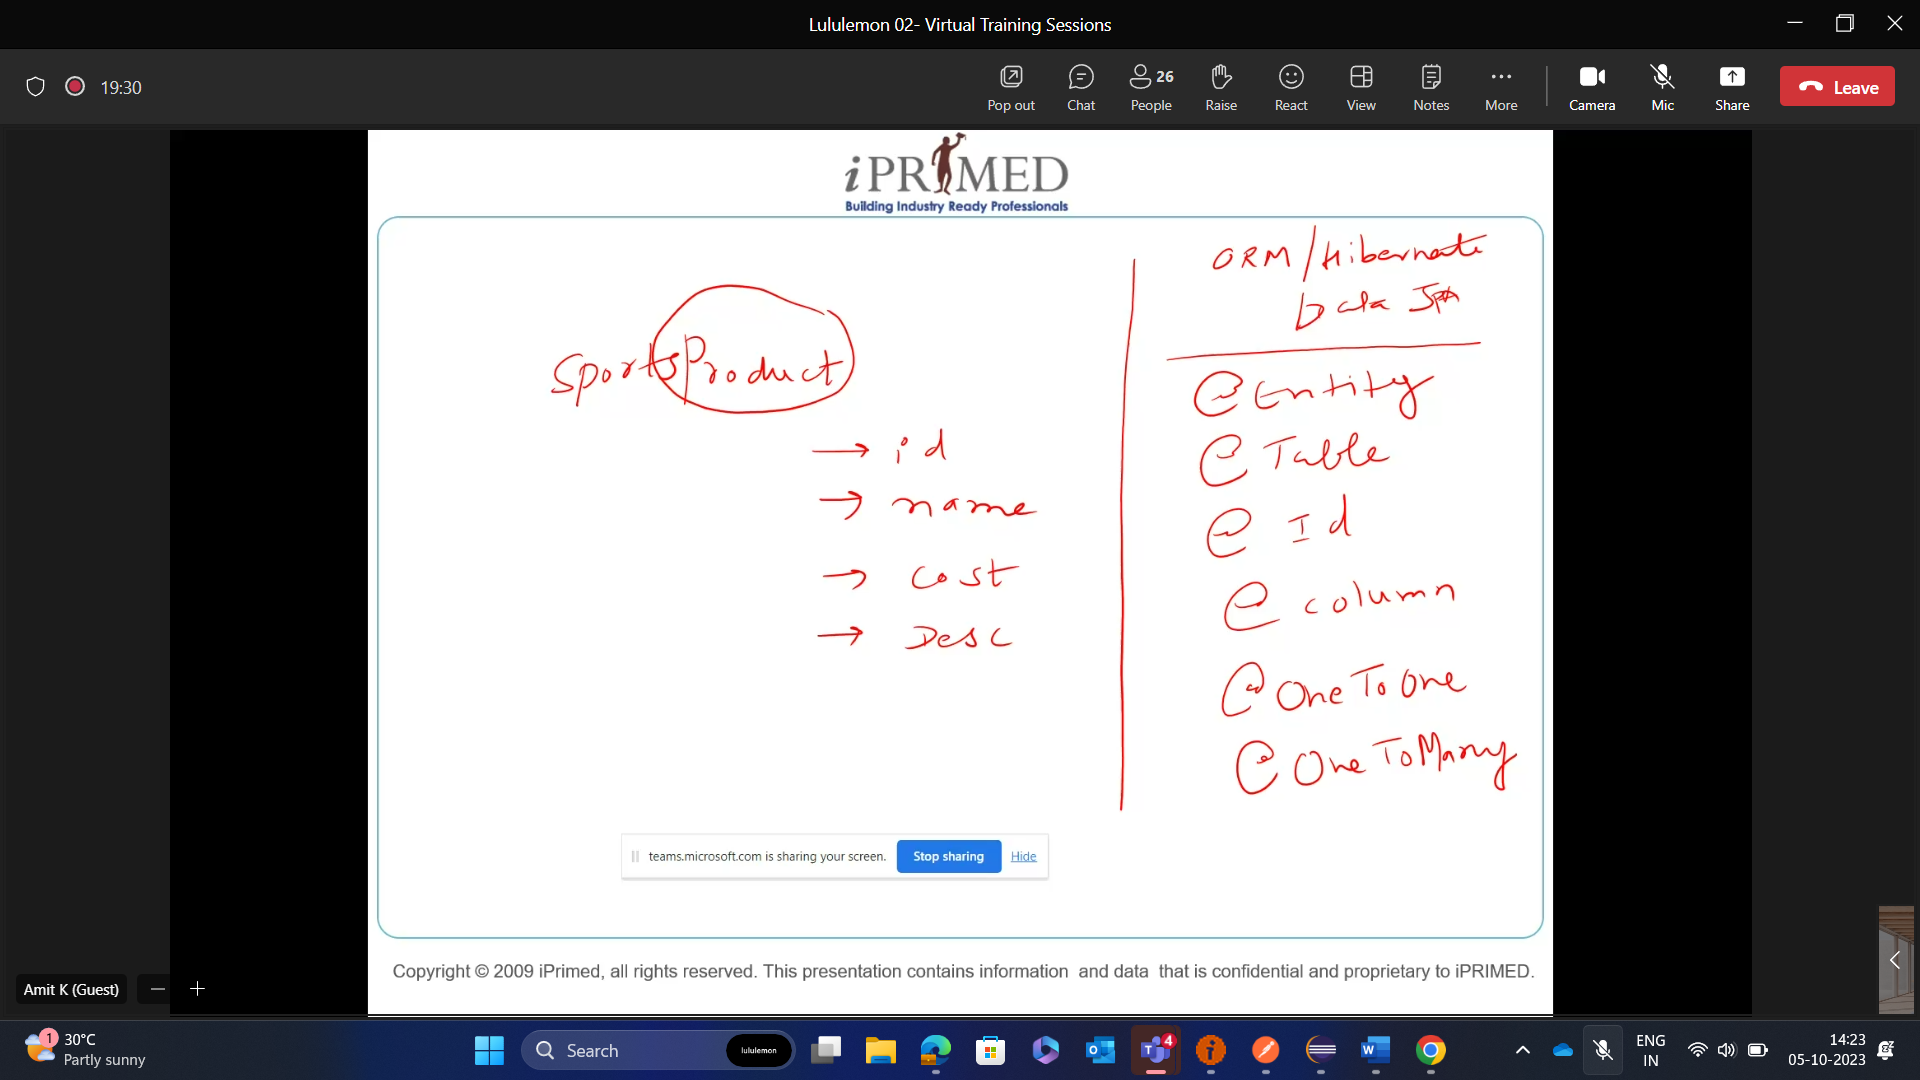 Lululemon 02- Virtual Training Sessions
19:30
Pop out
Chat
26
People
Raise
React
View
Notes
More
Camera
Mic
Share
Leave
iPRIMED
Building Industry Ready Professionals
SportsProduct
→ id
→ name
→ cost
→ Desc
ORM/Hibernate
Data JPA
@Entity
@Table
@Id
@column
@OneToOne
@OneToMany
teams.microsoft.com is sharing your screen.
Stop sharing
Hide
Copyright © 2009 iPrimed, all rights reserved. This presentation contains information and data that is confidential and proprietary to iPRIMED.
Amit K (Guest)
1
30°C
Partly sunny
Search
lululemon
4
ENG
IN
14:23
05-10-2023